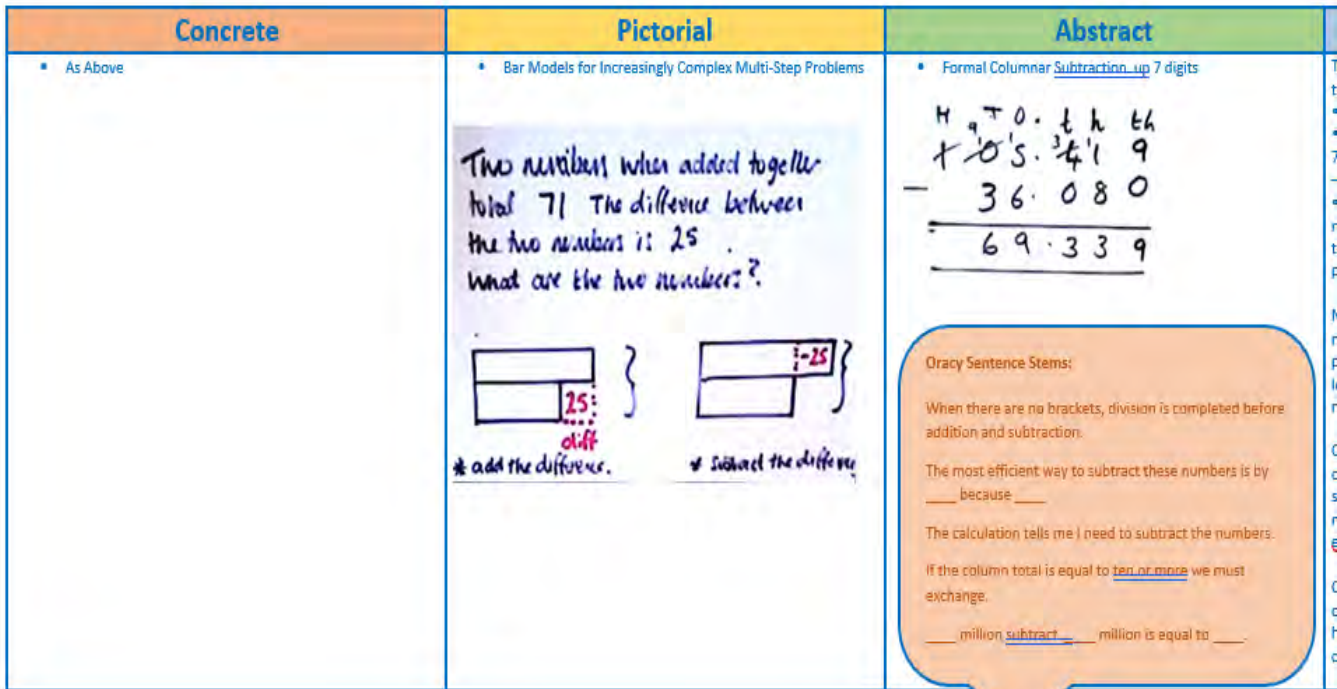 Concrete
Pictorial
Abstract
• As Above
• Bar Models for Increasingly Complex Multi-Step Problems
• Formal Columnar Subtraction up 7 digits
Two numbers when added together
total 71 The difference between
the two numbers is 25 .
What are the two numbers?
25
diff
* add the difference.
-25
* Subtract the differen
H T O . t h th
1 0 5 . 4 1 9
− 3 6 . 0 8 0
6 9 . 3 3 9
Oracy Sentence Stems:
When there are no brackets, division is completed before
addition and subtraction.
The most efficient way to subtract these numbers is by
____ because ____
The calculation tells me I need to subtract the numbers.
If the column total is equal to ten or more we must
exchange.
____ million subtract ____ million is equal to ____.